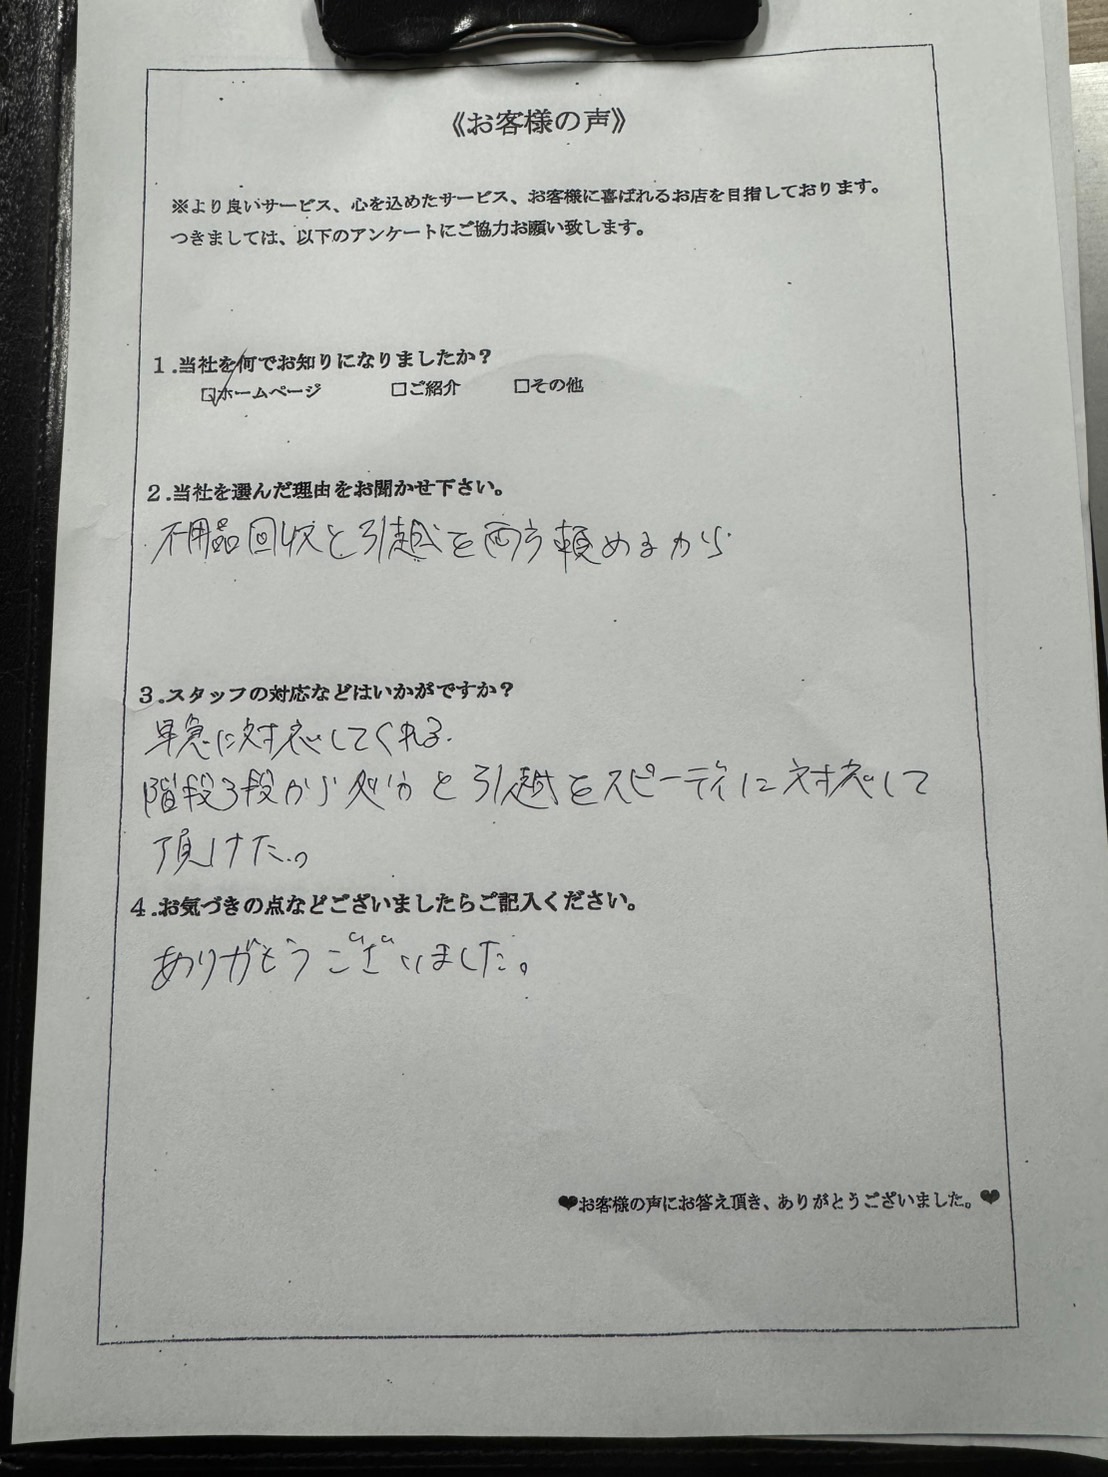 《お客様の声》
※より良いサービス、心を込めたサービス、お客様に喜ばれるお店を目指しております。
つきましては、以下のアンケートにご協力お願い致します。
１.当社を何でお知りになりましたか？
☑ホームページ　□ご紹介　□その他
２.当社を選んだ理由をお聞かせ下さい。
不用品回収と引越を両方頼めるから
３.スタッフの対応などはいかがですか？
早急に対応してくれる.
階段3段から処分と引越をスピーディに対応して
頂けた。
４.お気づきの点などございましたらご記入ください。
ありがとうございました。
❤お客様の声にお答え頂き、ありがとうございました。❤